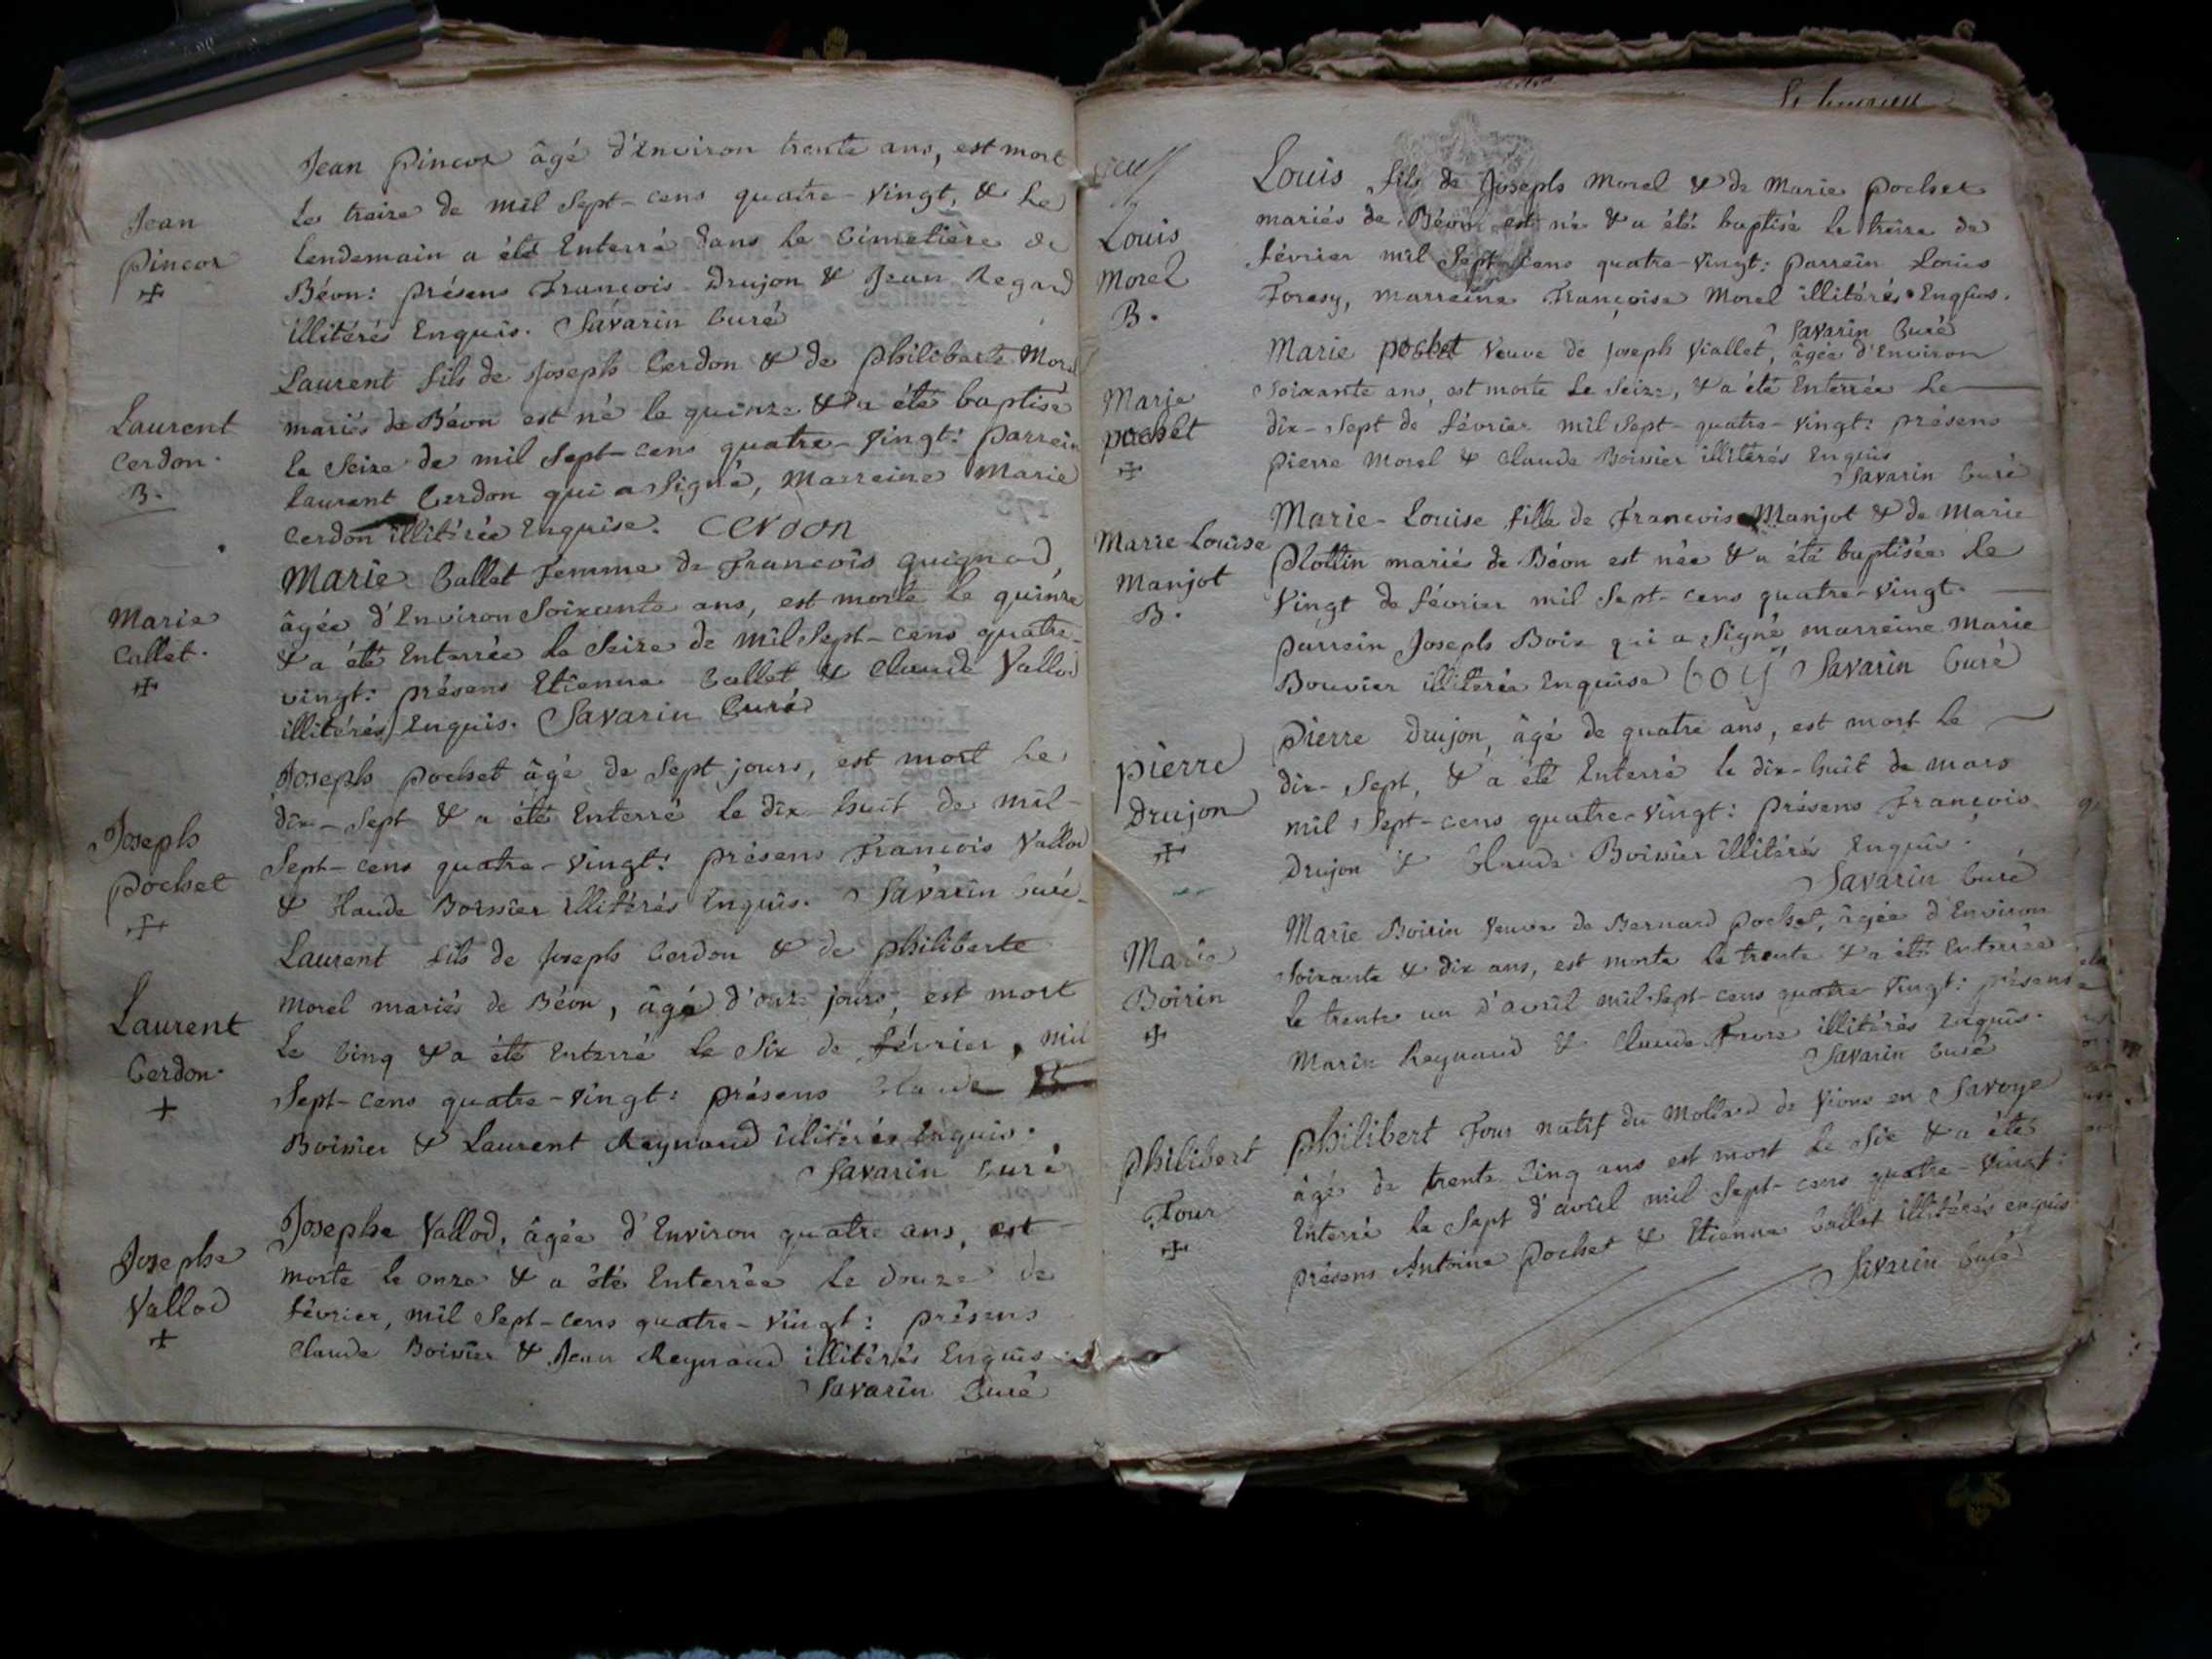 Jean
Pincor
Jean Pincor âgé d'Environ trente ans, est mort
Le treize de mil Sept-cens quatre-vingt, & Le
Lendemain a été Enterré dans Le Cimetière de
Béon: présens François Drujon & Jean Regard
illitérés Enquis. Savarin Curé
Laurent
Cerdon.
B.
Laurent fils de Joseph Cerdon & de Philiberte Morel
mariés de Béon est né le quinze & a été baptisé
le Seize de mil Sept-cens quatre-vingt: Parrein
Laurent Cerdon qui a Signé, Marreine Marie
Cerdon illitérée Enquise. Cerdon
Marie
Callet.
Marie Callet Femme de François quignod,
âgée d'Environ Soixante ans, est morte Le quinze
& a été Enterrée le Seize de Mil Sept-cens quatre-
vingt: présens Etienne Callet & Claude Vallod
illitérés Enquis. Savarin Curé
Joseph
Pochet
Joseph Pochet âgé de Sept jours, est mort Le
dix-Sept & a été Enterré le dix-huit de mil-
Sept-cens quatre-vingt: présens François Vallod
& Claude Boissier illitérés Enquis. Savarin Curé
Laurent
Cerdon.
Laurent fils de Joseph Cerdon & de Philiberte
Morel mariés de Béon, âgé d'onze jours, est mort
Le Cinq & a été Enterré le Six de février, mil
Sept-cens quatre-vingt: présens Claude
Boissier & Laurent Reynaud illitérés Enquis.
Savarin Curé
Josephe
Vallod
Josephe Vallod, âgée d'Environ quatre ans, est
morte le onze & a été Enterrée Le douze de
février, mil Sept-cens quatre-vingt: présens
Claude Boissier & Jean Reynaud illitérés Enquis
Savarin Curé
Louis
Morel
B.
Louis fils de Joseph Morel & de Marie Pochet
mariés de Béon est né & a été baptisé le treize de
février mil Sept-cens quatre-vingt: Parrein Louis
Foresy, marreine Françoise Morel illitérés Enquis.
Savarin Curé
Marie
pochet
Marie pochet Veuve de Joseph Viallet, âgée d'Environ
Soixante ans, est morte Le Seize, & a été Enterrée Le
dix-Sept de février mil Sept-quatre-vingt: présens
Pierre Morel & Claude Boissier illitérés Enquis
Savarin Curé
Marie Louise
Manjot
B.
Marie-Louise fille de François Manjot & de Marie
Plottin mariés de Béon est née & a été baptisée Le
Vingt de février mil Sept-cens quatre-vingt.
Parrein Joseph Boix qui a Signé, marreine Marie
Bouvier illitérée Enquise boy Savarin Curé
pierre
Drujon
Pierre Drujon, âgé de quatre ans, est mort Le
dix-Sept, & a été Enterré le dix-huit de mars
mil Sept-cens quatre-vingt: Présens François
Drujon & Claude Boissier illitérés Enquis.
Savarin Curé
Marie
Boirin
Marie Boirin Veuve de Bernard Pochet, âgée d'Environ
Soixante & dix ans, est morte le trente & a été Enterrée
le trente un d'avril mil Sept-cens quatre-vingt: présens
Marin Reynaud & Claude illitérés Enquis.
Savarin Curé
Philibert
Four
Philibert Four natif du Mollard de Vions en Savoye
âgé de trente Cinq ans est mort Le Six & a été
Enterré le Sept d'avril mil Sept-cens quatre-vingt:
présens Antoine Pochet & Etienne Callet illitérés enquis
Savarin Curé